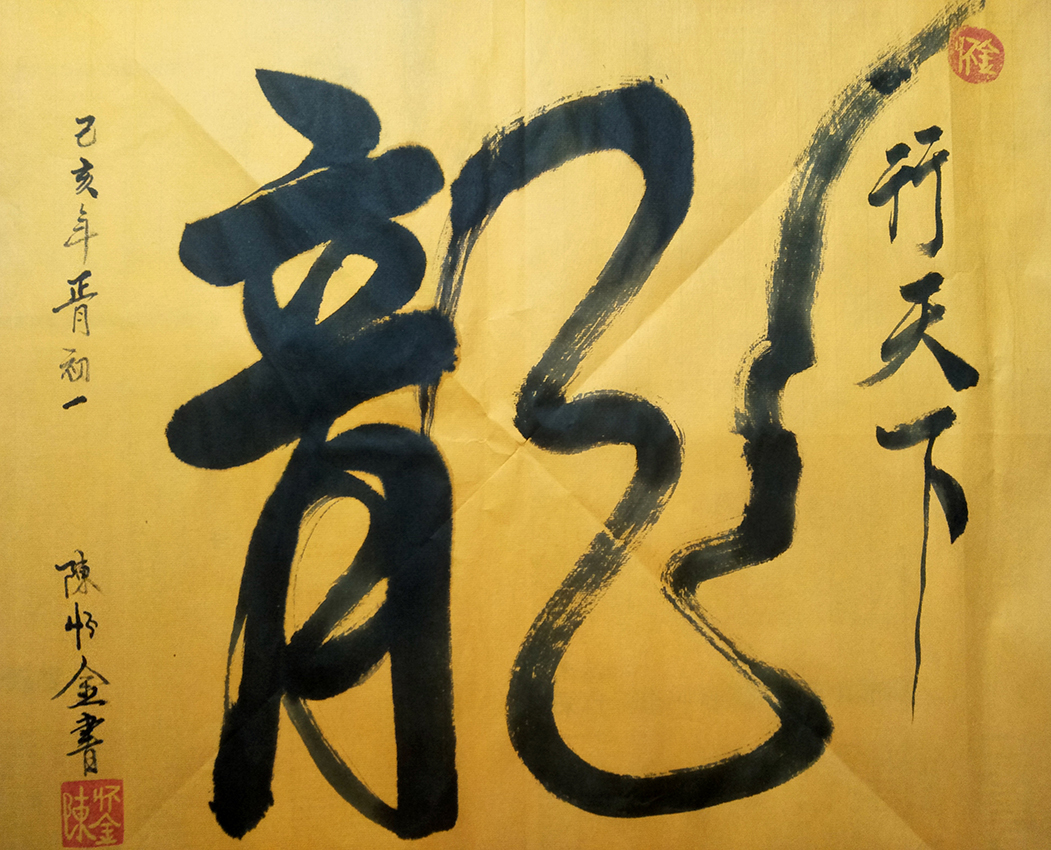 龍
行天下
己亥年正月初一
陳怀金書
怀金
陳怀金